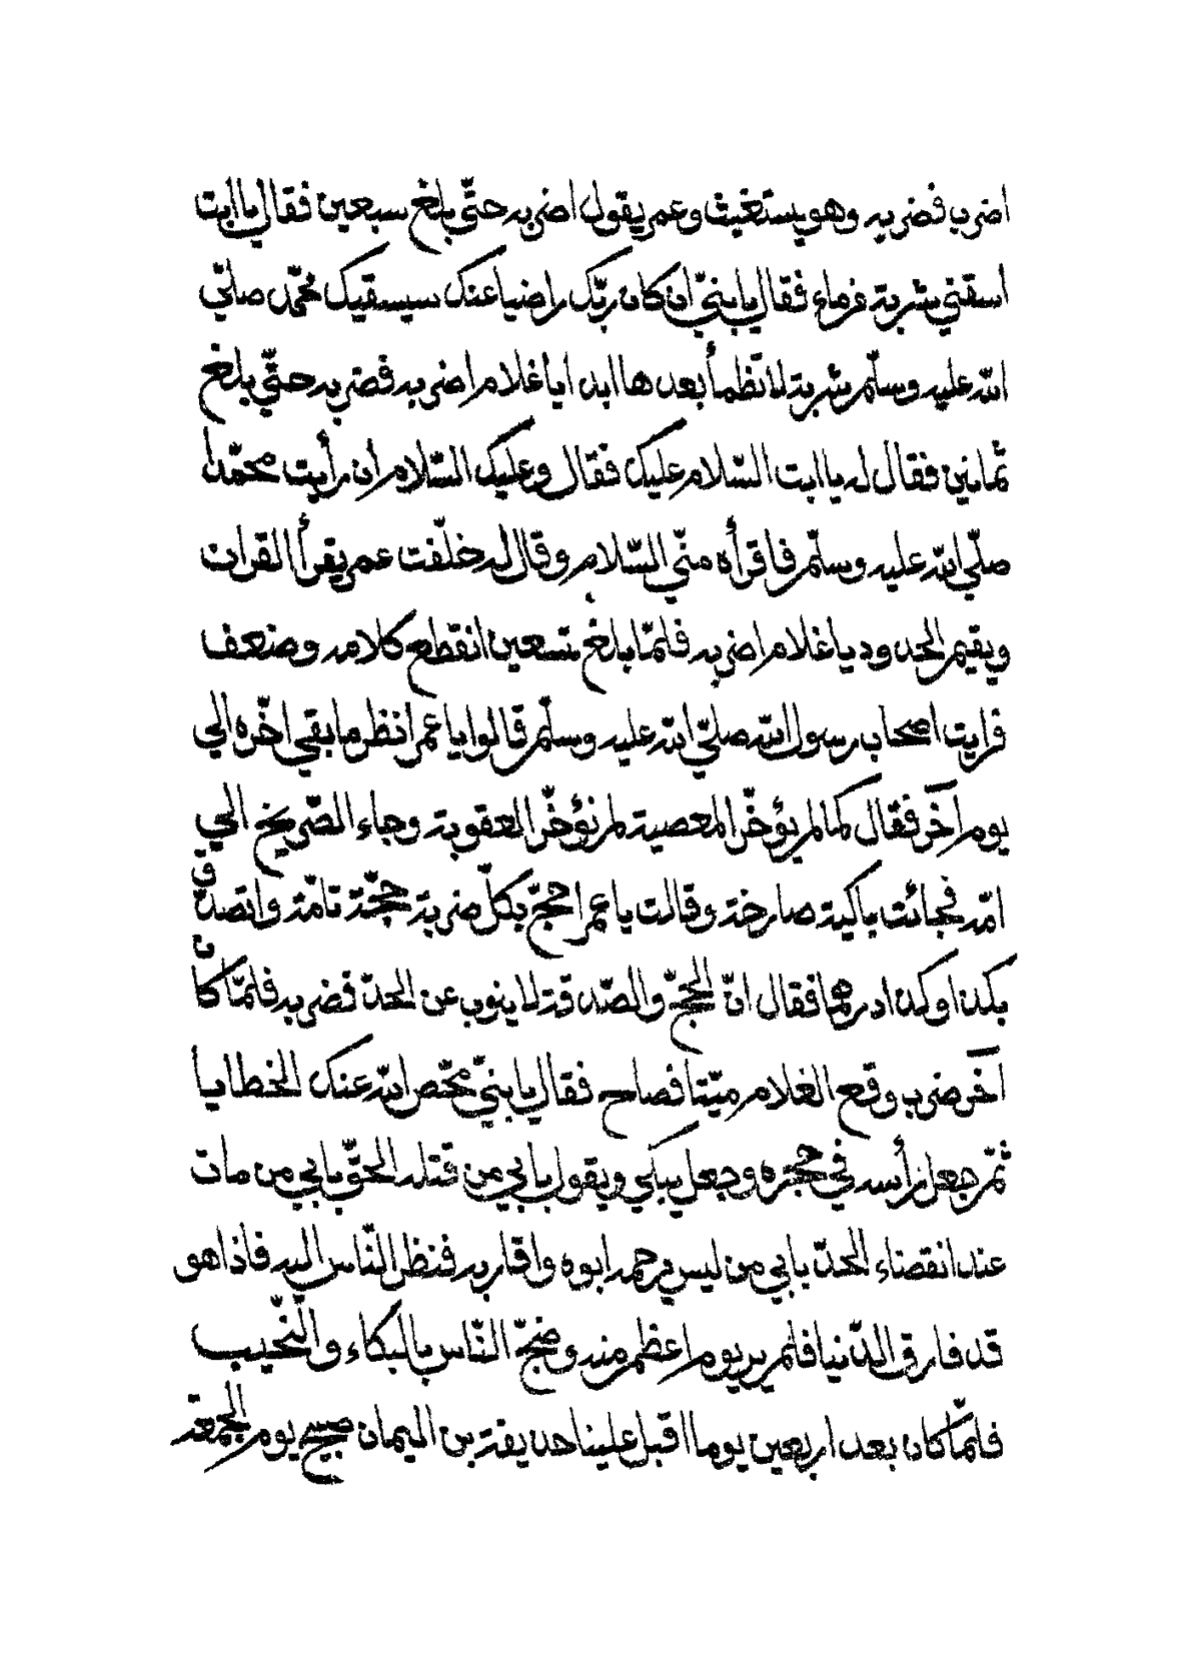 اضرب فضربه وهو يستغيث وعمر يقول اضربه حتّي بلغ سبعين فقال يا ابت
اسقني شربة فرماء فقال يا بنيّ ان كان ربّك راضيا عنك سيسقيك محمّد صلّي
الله عليه وسلّم شربة لا تظمأ بعدها ابدا يا غلام اضربه فضربه حتّي بلغ
ثمانين فقال له يا ابت السّلام عليك فقال وعليك السّلام ان رأيت محمّدا
صلّي الله عليه وسلّم فاقرأه منّي السّلام وقال له خلّفت عمر يقرأ القران
ويقيم الحدود يا غلام اضربه فلمّا بلغ تسعين انقطع كلامه وضعف
فرايت اصحاب رسول الله صلّي الله عليه وسلّم قالوا يا عمر انظر ما بقي اخّره الي
يوم آخر فقال كما لم يؤخّر المعصية لم نؤخّر العقوبة وجاء الصّريخ الي
امّه فجائت باكية صارخة وقالت يا عمر احجّ بكلّ ضربة حجّة تامّة واتصدّق
بكذا وكذا درهما فقال انّ الحجّ والصّدقة لا ينوب عن الحدّ فضربه فلمّا كان
آخر ضرب وقع الغلام ميّتا فصاح فقال يا بنيّ محّص الله عنك الخطايا
ثمّ جعل رأسه في حجره وجعل يبكي ويقول بابي من قتله الحقّ بابي من مات
عند انقضاء الحدّ بابي من ليس يرحمه ابوه واقاربه فنظر النّاس اليه فاذا هو
قد فارق الدّنيا فلم ير يوم اعظم منه وضجّ النّاس بالبكاء والنّحيب
فلمّا كان بعد اربعين يوما اقبل علينا حذيفة بن اليمان صبيح يوم الجمعة